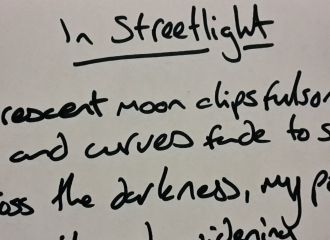 In Streetlight
rescent moon clips fulsom
and curves fade to s
oss the darkness, my p